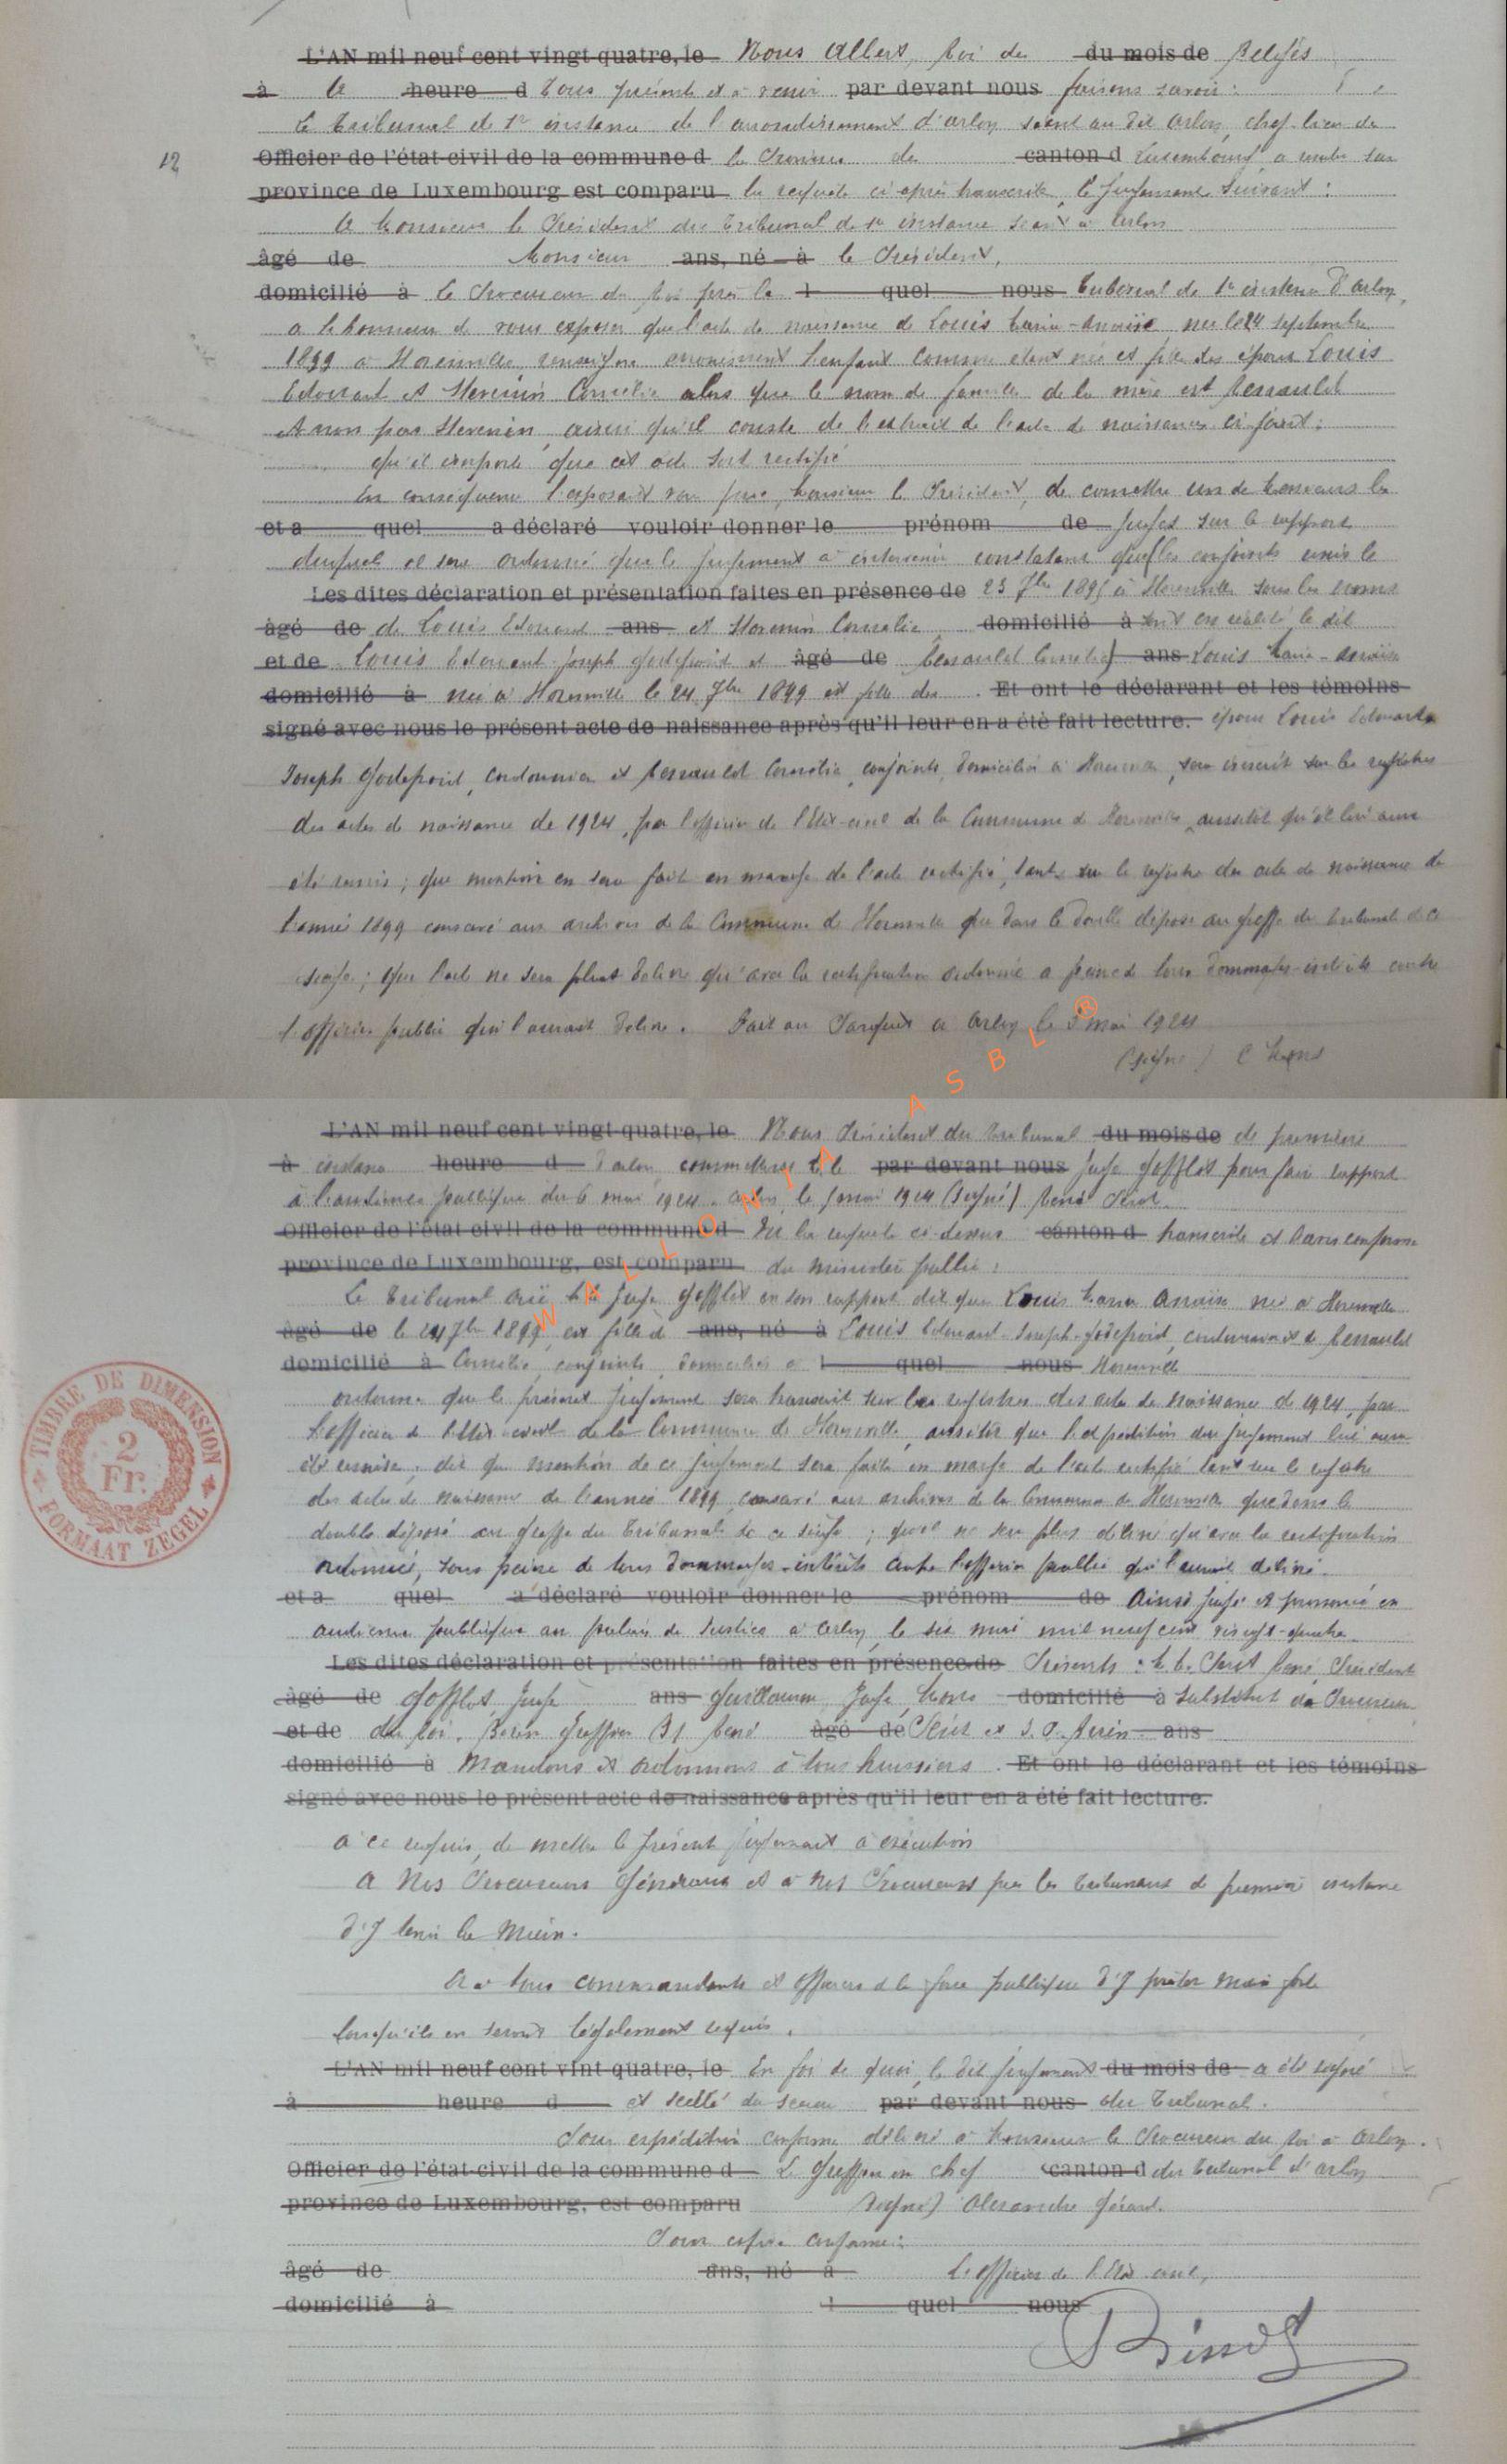 L'AN mil neuf cent vingt quatre, le Nous Albert, Roi des du mois de Belges
à A heure d tous présents et à venir par devant nous faisons savoir :
Le Tribunal de 1re instance de l'arrondissement d'Arlon séant au dit Arlon, chef-lieu de
12 Officier de l'état-civil de la commune d la Province de canton d Luxembourg a rendu sur
province de Luxembourg est comparu la requête ci-après transcrite, le jugement suivant :
A Monsieur le Président du Tribunal de 1re instance séant à Arlon
âgé de Monsieur ans, né à le Président,
domicilié à Le Procureur du Roi près le l quel nous Tribunal de 1re instance d'Arlon,
a l'honneur de vous exposer que l'acte de naissance de Louis Maria-Anaïse née le 24 septembre
1899 à renseigne erronément l'enfant comme étant née et fille des époux Louis
Edouard et Cornélie alors que le nom de famille de la mère est
et non pas ainsi qu'il conste de l'extrait de l'acte de naissance ci-joint ;
qu'il importe que cet acte soit rectifié
En conséquence l'exposant vous prie, Monsieur le Président, de commettre un de Messieurs les
et a quel a déclaré vouloir donner le prénom de Juges sur le rapport
duquel il sera ordonné que le jugement à intervenir constatant que les conjoints unis le
Les dites déclaration et présentation faites en présence de 23 7bre à sous les noms
âgé de de Louis Edouard ans et Cornélie domicilié à sont en réalité le dit
et de Louis Edouard Joseph Godefroid et âgé de Cornélie ans Louis Maria-Anaïse
domicilié à née à le 24 7bre 1899 est fille des . Et ont le déclarant et les témoins
signé avec nous le présent acte de naissance après qu'il leur en a été fait lecture. époux Louis Edouard
Joseph Godefroid, cordonnier et Cornélie, conjoints, domiciliés à sera inscrit sur les registres
des actes de naissance de 1924, par l'officier de l'Etat-civil de la Commune de aussitôt qu'il lui aura
été remis ; que mention en sera faite en marge de l'acte rectifié, tant sur le registre des actes de naissance de
l'année 1899 conservé aux archives de la Commune de que dans le double déposé au greffe du tribunal de ce
siège ; que l'acte ne sera plus délivré qu'avec la rectification ordonnée à peine de tous dommages-intérêts contre
l'officier public qui l'aurait délivré. Fait au Parquet à Arlon le 5 mai 1924
(signé)
WALLONIA ASBL ®
L'AN mil neuf cent vingt quatre, le Nous Président du Tribunal du mois de de première
à instance heure d d'Arlon, commettons M le par devant nous Juge Gofflot pour faire rapport
à l'audience publique du 6 mai 1924. Arlon, le 5 mai 1924 (signé) René
Officier de l'état civil de la commune d Vu la requête ci-dessus canton d transcrite et l'avis conforme
province de Luxembourg, est comparu du ministère public :
Le Tribunal ouï M le Juge Gofflot en son rapport dit que Louis Maria Anaïse née à
âgé de le 24 7bre 1899, est fille de ans, né à Louis Edouard-Joseph-Godefroid, cordonnier et de
domicilié à Cornélie, conjoints, domiciliés à l quel nous
ordonne que le présent jugement sera transcrit sur les registres des actes de naissance de 1924, par
l'officier de l'état-civil de la Commune de aussitôt que l'expédition du jugement lui aura
été remise ; dit que mention de ce jugement sera faite en marge de l'acte rectifié tant sur le registre
des actes de naissance de l'année 1899 conservé aux archives de la Commune de que dans le
double déposé au greffe du Tribunal de ce siège ; qu'il ne sera plus délivré qu'avec la rectification
ordonnée, sous peine de tous dommages-intérêts contre l'officier public qui l'aurait délivré.
et a quel a déclaré vouloir donner le prénom de Ainsi jugé et prononcé en
audience publique au palais de Justice à Arlon, le six mai mil neuf cent vingt-quatre.
Les dites déclaration et présentation faites en présence de Présents : M.M. René, Président
âgé de Gofflot, Juge ans Guillaume, Juge, domicilié à Substitut du Procureur
et de du Roi, Greffier René âgé de et ans
domicilié à Mandons et ordonnons à tous huissiers . Et ont le déclarant et les témoins
signé avec nous le présent acte de naissance après qu'il leur en a été fait lecture.
à ce requis, de mettre le présent jugement à exécution
A Nos Procureurs Généraux et à Nos Procureurs près les Tribunaux de première instance
d'y tenir la main.
Et à tous commandants et officiers de la force publique d'y prêter main forte
lorsqu'ils en seront légalement requis.
L'AN mil neuf cent vint quatre, le En foi de quoi, le dit jugement du mois de a été signé
à heure d et scellé du sceau par devant nous du Tribunal.
Pour expédition conforme délivrée à Monsieur le Procureur du Roi à Arlon.
Officier de l'état-civil de la commune d Le Greffier en chef canton d du Tribunal d'Arlon
province de Luxembourg, est comparu (signé) Alexandre Gérard.
Pour copie conforme :
âgé de ans, né à L'officier de l'Etat civil,
domicilié à l quel nous
TIMBRE DE DIMENSION
2
Fr.
FORMAAT ZEGEL